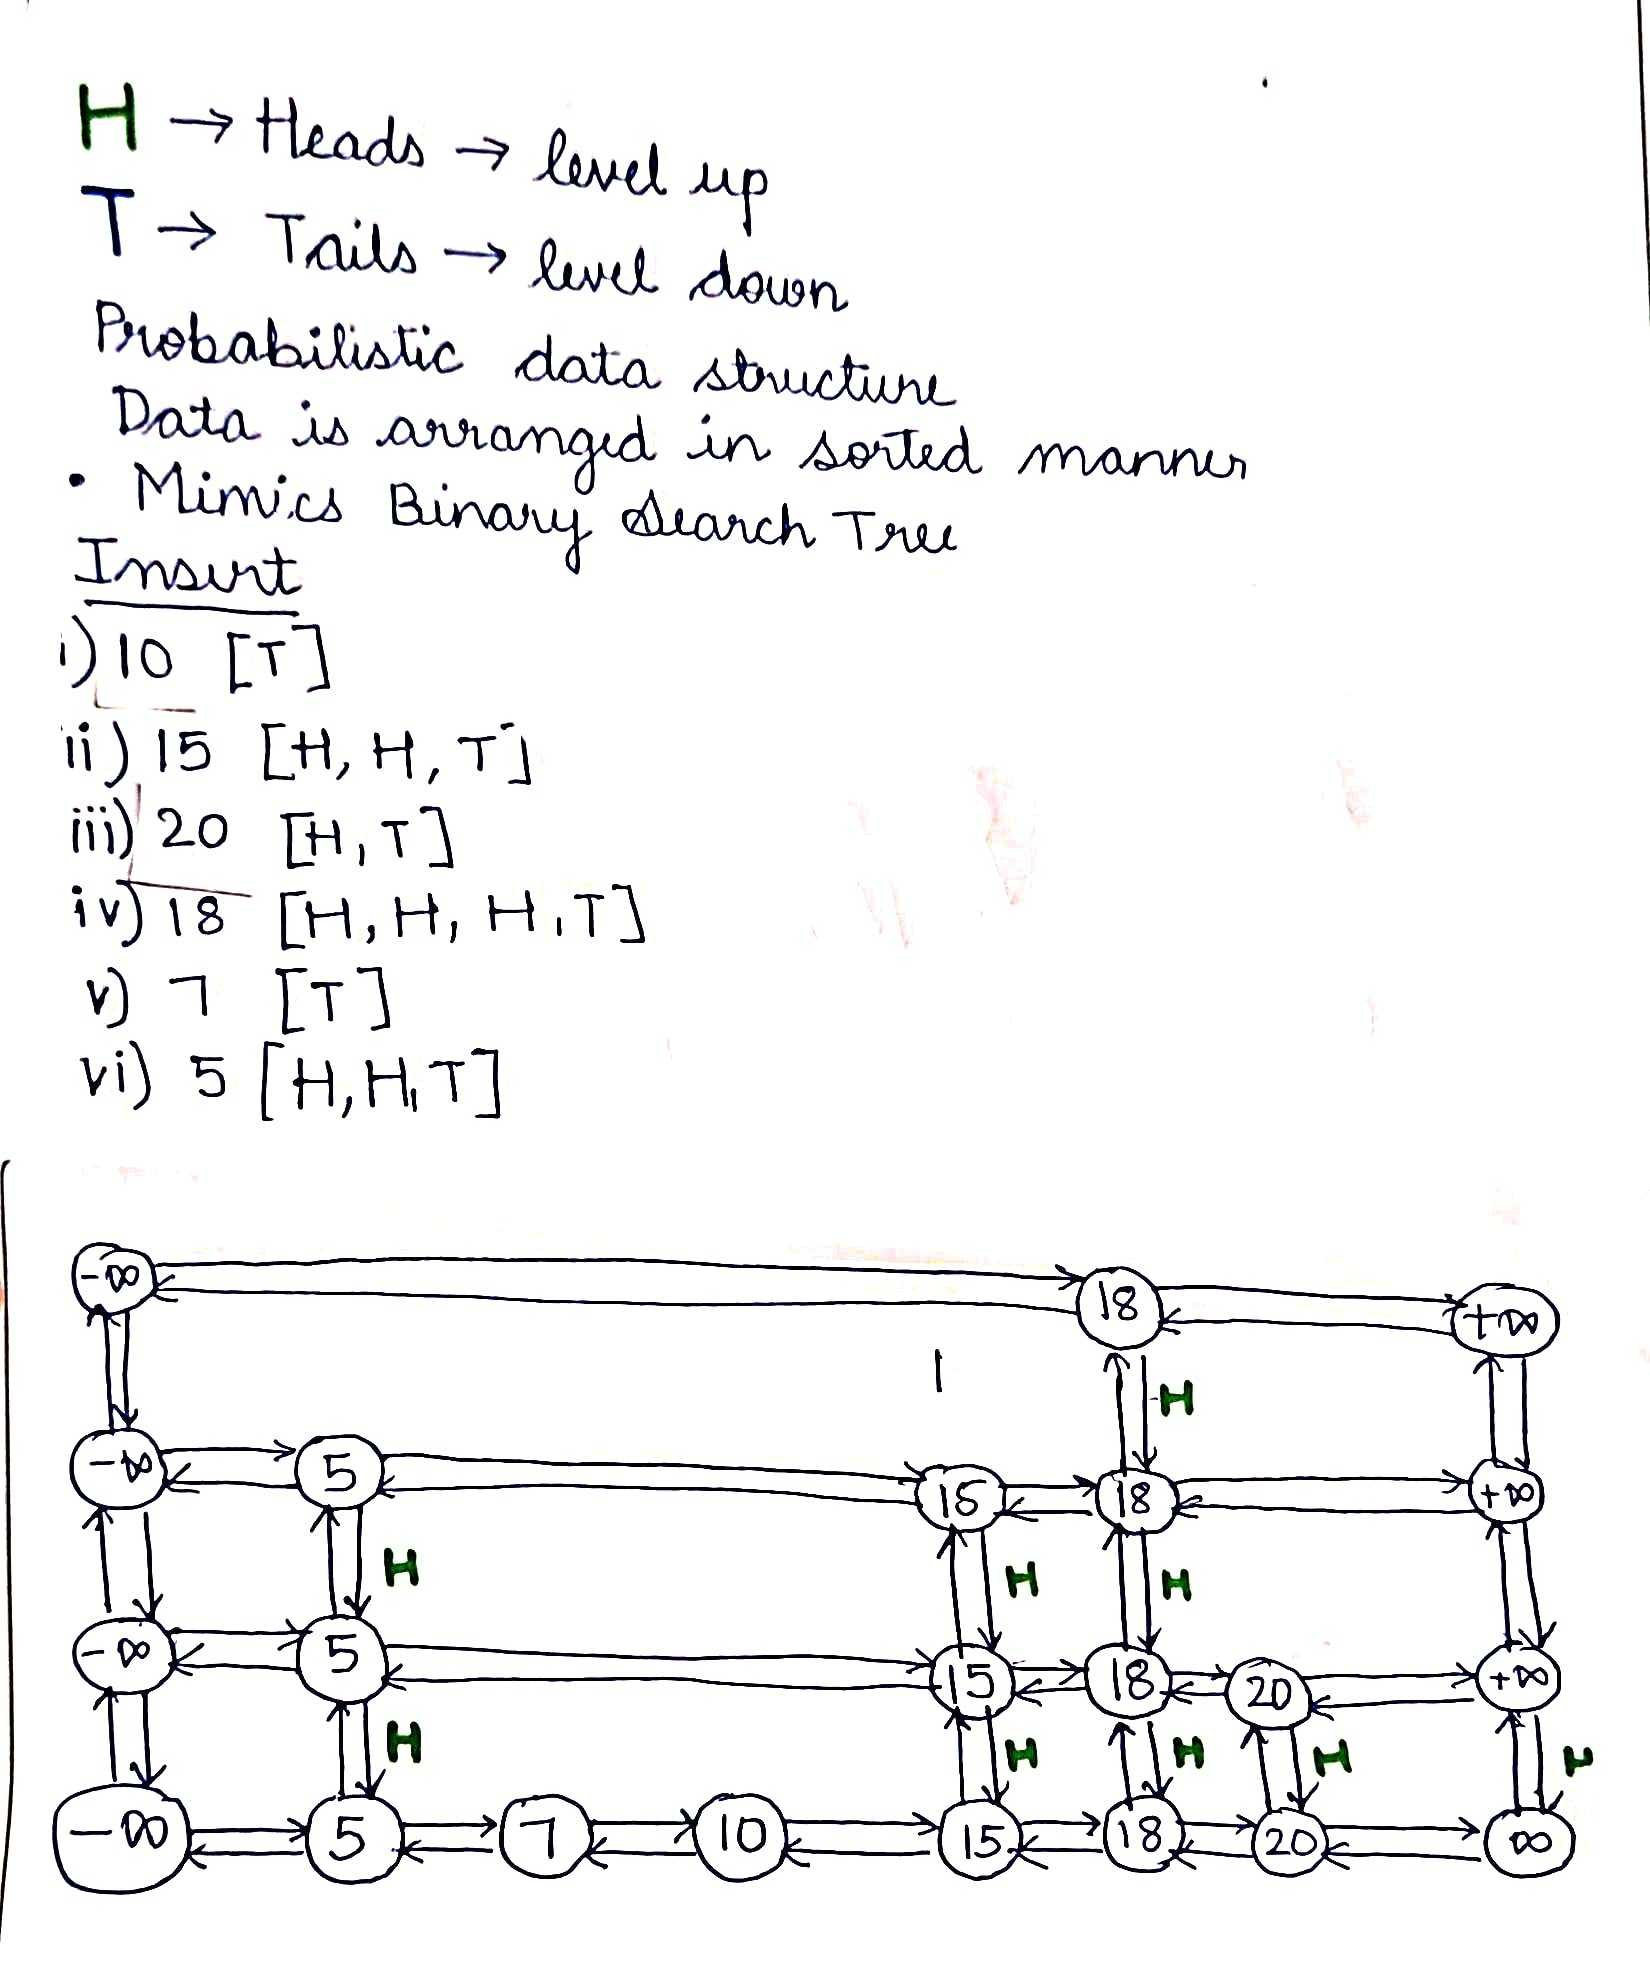 H → Heads → level up
T → Tails → level down
Probabilistic data structure
Data is arranged in sorted manner
• Mimics Binary Search Tree
Insert
i) 10 [T]
ii) 15 [H, H, T]
iii) 20 [H, T]
iv) 18 [H, H, H, T]
v) 7 [T]
vi) 5 [H, H, T]
-∞ 18 +∞
H
-∞ 5 15 18 +∞
H H H
-∞ 5 15 18 20 +∞
H H H H
-∞ 5 7 10 15 18 20 ∞